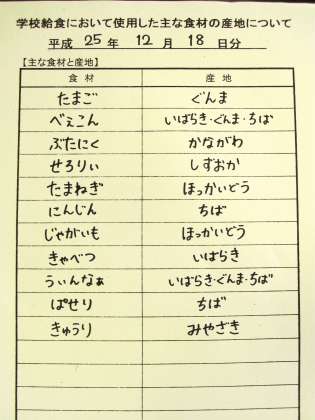 学校給食において使用した主な食材の産地について
平成 25 年 12 月 18 日分
【主な食材と産地】
食材 産地
たまご ぐんま
べぇこん いばらき・ぐんま・ちば
ぶたにく かながわ
せろりぃ しずおか
たまねぎ ほっかいどう
にんじん ちば
じゃがいも ほっかいどう
きゃべつ いばらき
うぃんなぁ いばらき・ぐんま・ちば
ぱせり ちば
きゅうり みやざき